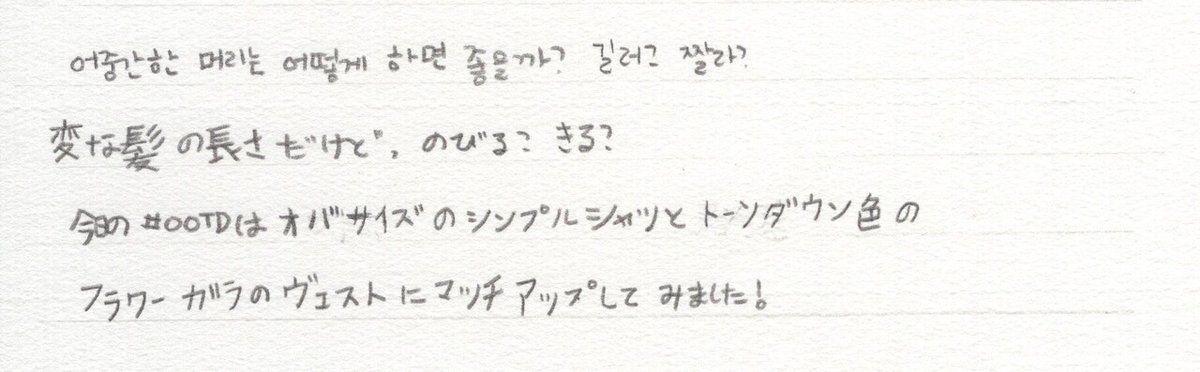 어중간한 머리는 어떻게 하면 좋을까? 길러? 짤라?
変な髪の長さだけど、のびる? きる?
今日の #OOTDは オバサイズ のシンプルシャツと トーンダウン色の
フラワー ガラの ヴェスト に マッチ アップして みました!